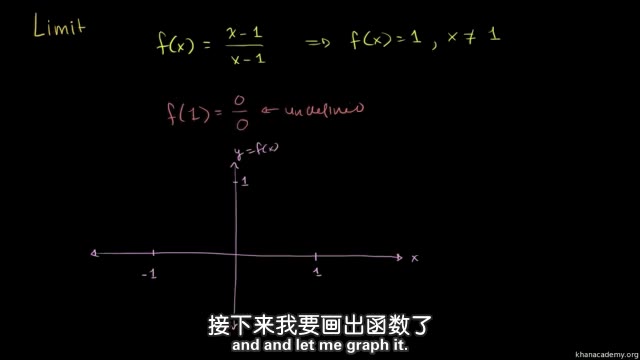 Limit
f(x) = x-1 / x-1 ⇒ f(x)=1, x ≠ 1
f(1) = 0/0 ← undefined
y=f(x)
1
x
-1 1
接下来我要画出函数了
and and let me graph it.
khanacademy.org